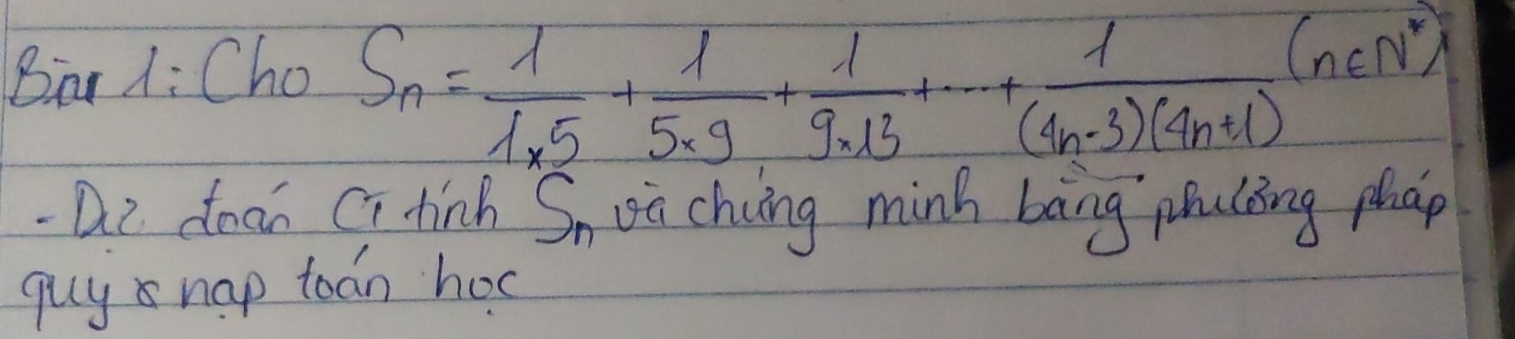 Bài 1: Cho Sn = 1/(1×5) + 1/(5×9) + 1/(9×13) + ... + 1/((4n-3)(4n+1)) (n∈N*)
- Dự đoán CT tính Sn và chứng minh bằng phương pháp
quy nạp toán học